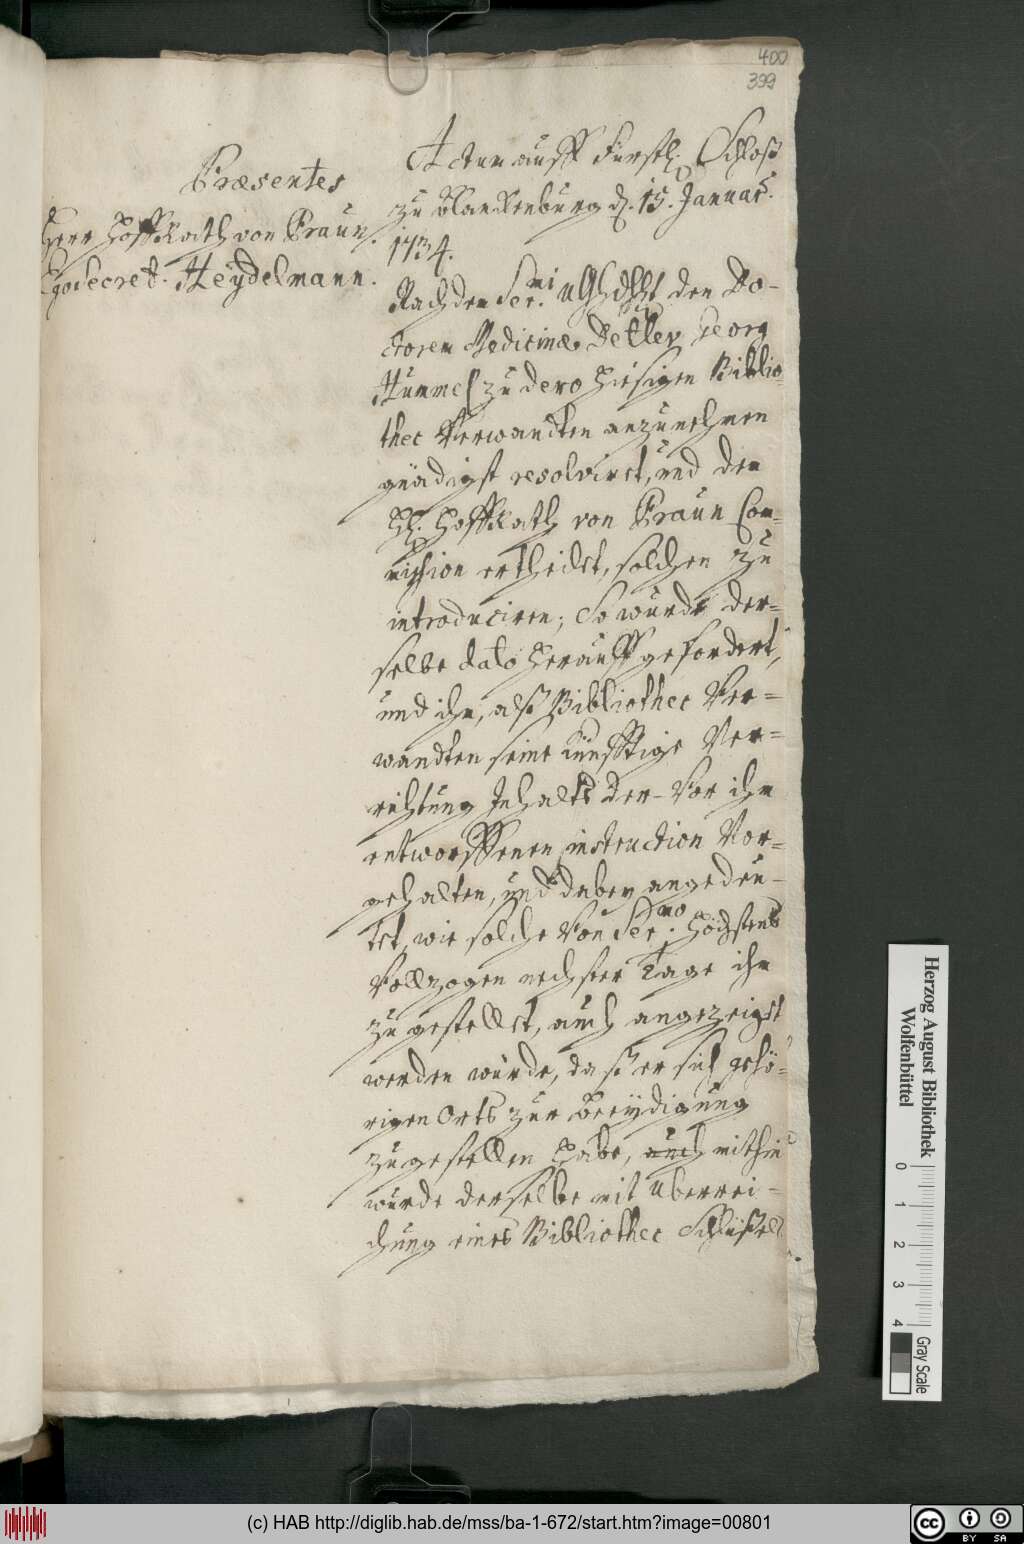 400
399
Præsentes
Herr HoffRath von Praun.
Ego Secret. Heÿdelmann.
Actum auff Fürstl. Schloß
zu Blanckenburg d. 15. Januar.
1734.
Nachdem Ser.mi den Do-
ctorem Medicinæ Detlev Georg
Hümmel zu dero hiesigen Biblio-
thec Verwandten anzunehmen
gnädigst resolviret, und den
H. HoffRath von Praun Com-
mission ertheilet, solchen zu
introduciren; So wurde der-
selbe dato herauff gefordert,
und ihm, alß Bibliothec Ver-
wandten seine künfftige Ver-
richtung Inhalts der vor ihm
entworffenen instruction vor-
gehalten, und dabey angedeu-
tet, wie solche von Ser.mo höchstens
vollzogen nechster Tage ihm
zugestellet, auch angezeiget
werden würde, daß er sich gehö-
rigen Orts zur Beeÿdigung
zugestellen habe, auch mithin
wurde derselbe mit überrei-
chung eines Bibliothec Schlüßels
Herzog August Bibliothek
Wolfenbüttel
0 1 2 3 4
Gray Scale
(c) HAB http://diglib.hab.de/mss/ba-1-672/start.htm?image=00801
cc BY SA